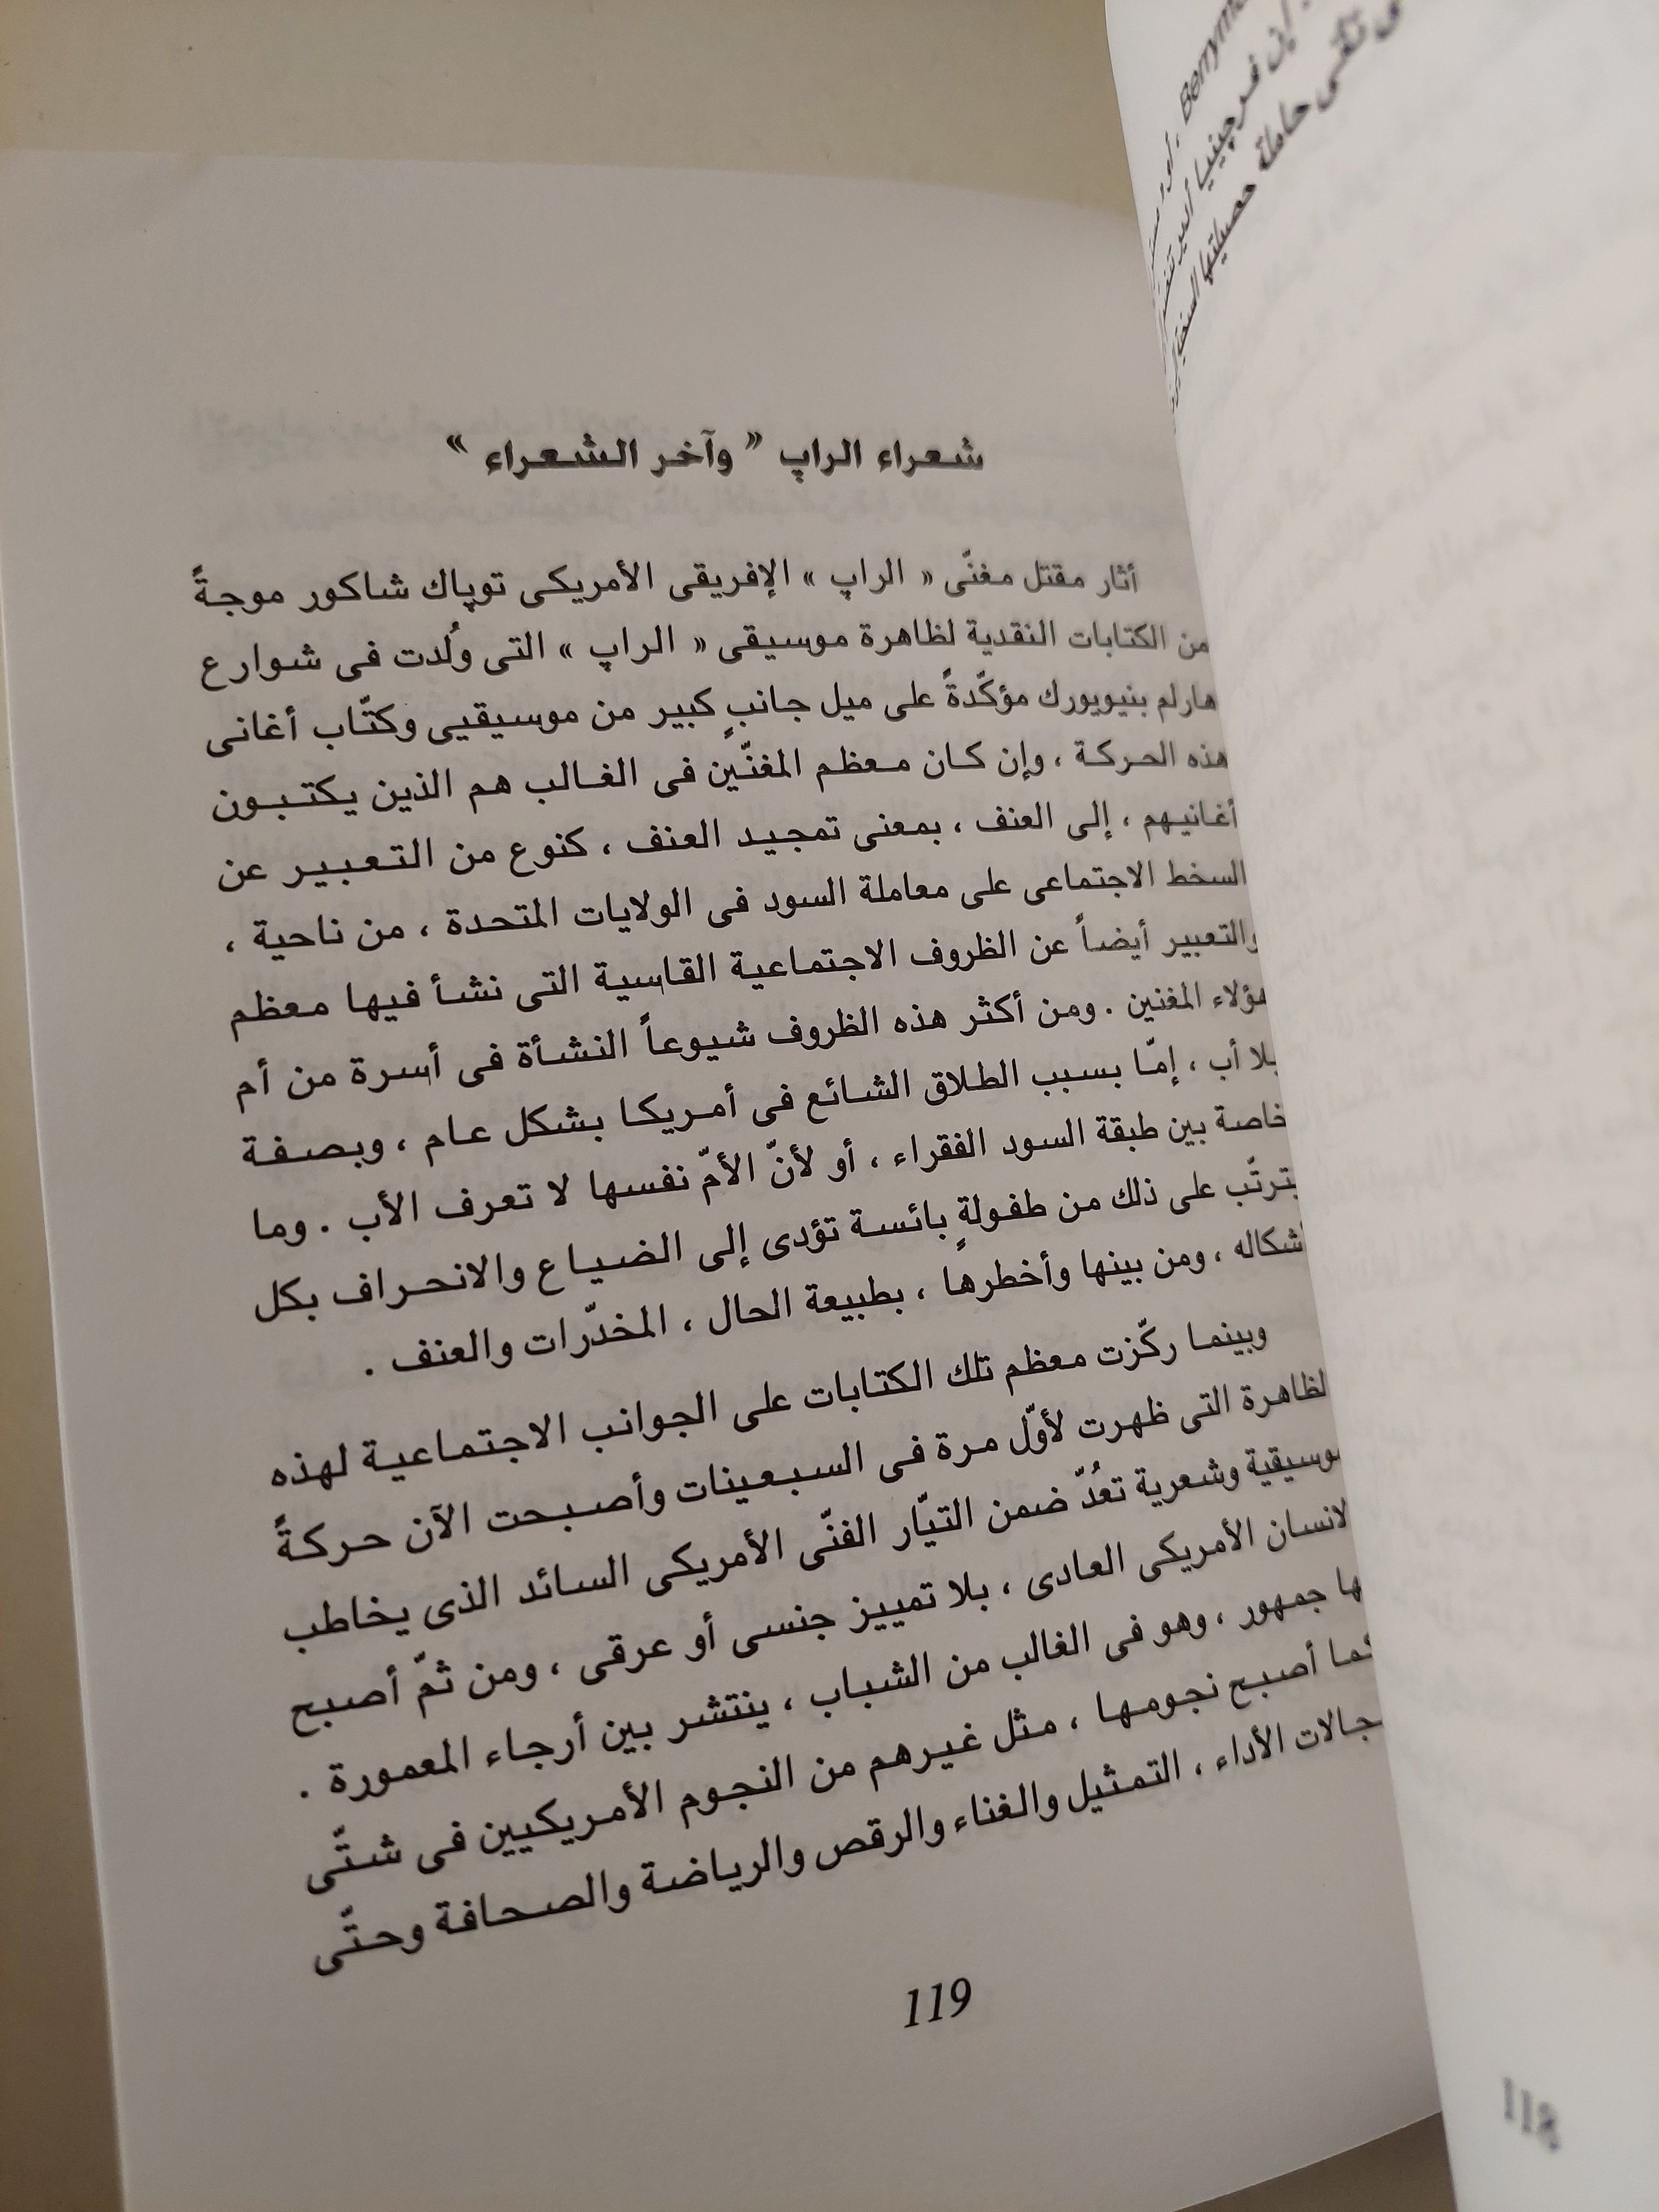 شعراء الراپ « وآخر الشعراء »
أثار مقتل مغنّى « الراپ » الإفريقى الأمريكى توپاك شاكور موجةً
من الكتابات النقدية لظاهرة موسيقى « الراپ » التى وُلدت فى شوارع
هارلم بنيويورك مؤكّدةً على ميل جانبٍ كبير من موسيقيى وكتّاب أغانى
هذه الحركة ، وإن كان معظم المغنّين فى الغالب هم الذين يكتبون
أغانيهم ، إلى العنف ، بمعنى تمجيد العنف ، كنوع من التعبير عن
السخط الاجتماعى على معاملة السود فى الولايات المتحدة ، من ناحية ،
والتعبير أيضاً عن الظروف الاجتماعية القاسية التى نشأ فيها معظم
هؤلاء المغنين . ومن أكثر هذه الظروف شيوعاً النشأة فى أسرة من أم
بلا أب ، إمّا بسبب الطلاق الشائع فى أمريكا بشكل عام ، وبصفة
خاصة بين طبقة السود الفقراء ، أو لأنّ الأمّ نفسها لا تعرف الأب . وما
يترتّب على ذلك من طفولةٍ بائسة تؤدى إلى الضياع والانحراف بكل
أشكاله ، ومن بينها وأخطرها ، بطبيعة الحال ، المخدّرات والعنف .
وبينما ركّزت معظم تلك الكتابات على الجوانب الاجتماعية لهذه
الظاهرة التى ظهرت لأوّل مرة فى السبعينات وأصبحت الآن حركةً
موسيقية وشعرية تعُدّ ضمن التيّار الفنّى الأمريكى السائد الذى يخاطب
الانسان الأمريكى العادى ، بلا تمييز جنسى أو عرقى ، ومن ثمّ أصبح
لها جمهور ، وهو فى الغالب من الشباب ، ينتشر بين أرجاء المعمورة .
كما أصبح نجومها ، مثل غيرهم من النجوم الأمريكيين فى شتّى
مجالات الأداء ، التمثيل والغناء والرقص والرياضة والصحافة وحتّى
119